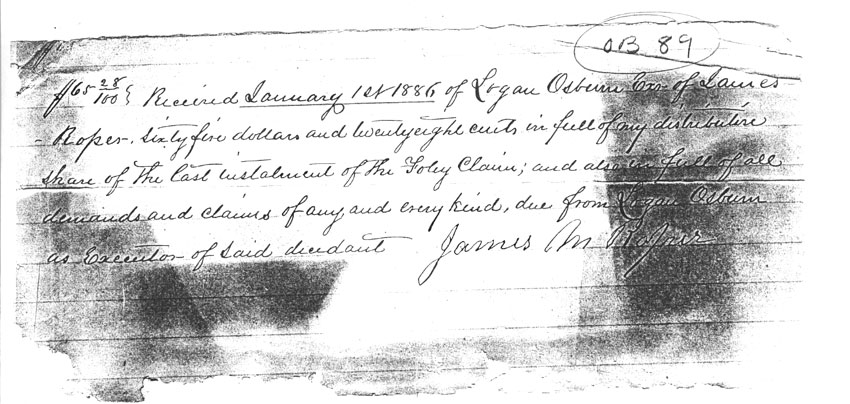 OB 89
$65 28/100 } Received January 1st 1886 of Logan Osburn Exr of James
Roper. sixty five dollars and twentyeight cents in full of my distributive
share of the last instalment of the Foley Claim; and also in full of all
demands and claims of any and every kind, due from Logan Osburn
as Executor of said decedant James M Roper